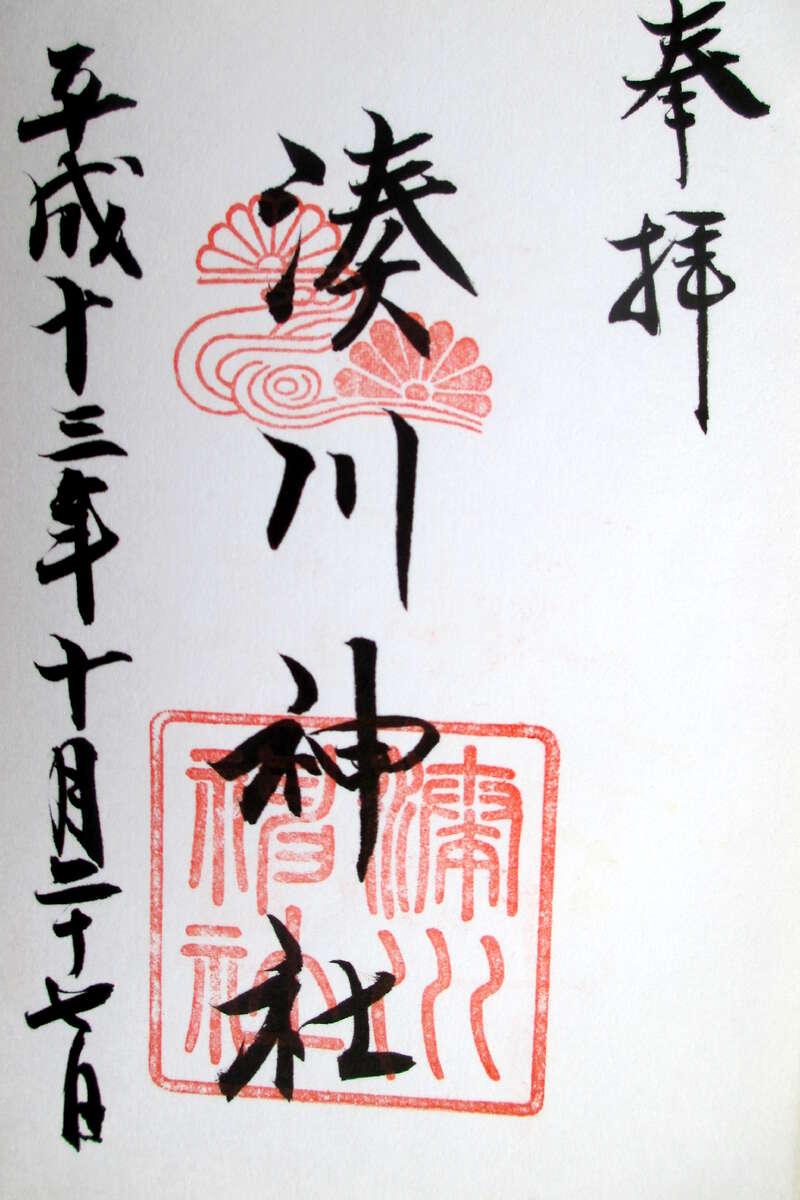 奉拝
湊川神社
湊川神社
平成十三年十月二十七日